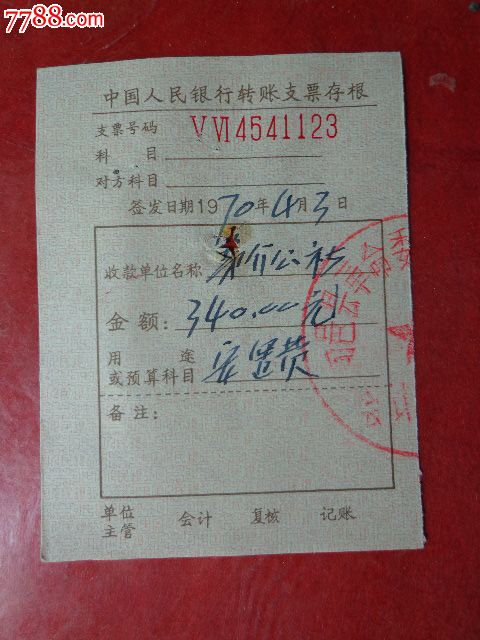 7788.com
中国收藏热线
中国人民银行转账支票存根
支票号码 V VI4541123
科 目
对方科目
签发日期1970年4月3日
收款单位名称 公社
金额: 340.00元
用 途 安置费
或预算科目
备注:
单位主管 会计 复核 记账